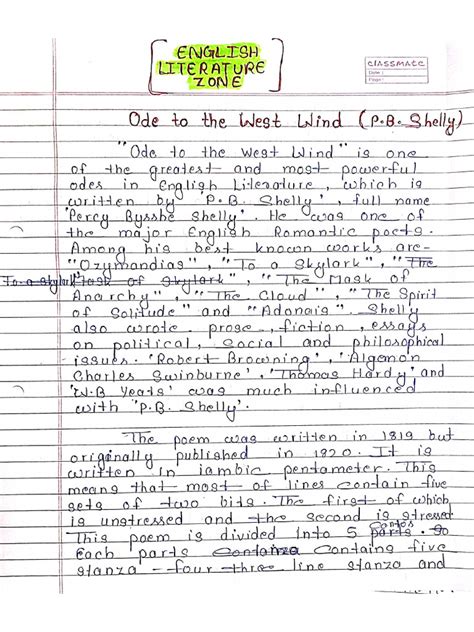 ENGLISH
LITERATURE
ZONE
CLASSMATE
Date :
Page :
Ode to the West Wind (P.B. Shelly)
"Ode to the West Wind" is one
of the greatest and most powerful
odes in English Literature, which is
written by 'P.B. Shelly', full name
'Percy Bysshe Shelly'. He was one of
the major English Romantic poets.
Among his best known works are-
"Ozymandias", "To a Skylark", "The
To a skylark Mask of Skylark", "The Mask of
Anarchy", "The Cloud", "The Spirit
of Solitude" and "Adonais". Shelly
also wrote prose, fiction, essays
on political, social and philosophical
issues. 'Robert Browning', 'Algernon
Charles Swinburne', 'Thomas Hardy' and
'W.B Yeats' was much influenced
with 'P.B. Shelly'.
The poem was written in 1819 but
originally published in 1820. It is
written in iambic pentameter. This
means that most of lines contain five
sets of two bits. The first of which
is unstressed and the second is stressed
This poem is divided into 5 parts. So
Cantos
Each parts contains five
stanza - four three line stanza and